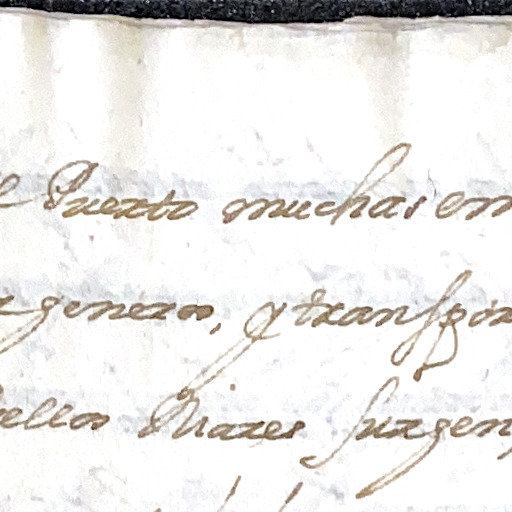 Puerto muchas em
generos, y transpor
ellos Mares surgen